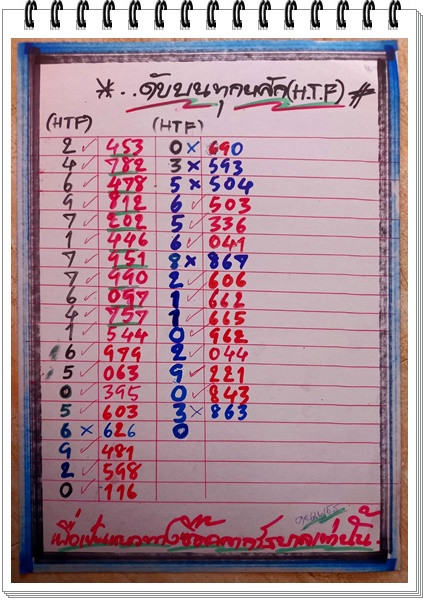 *..ดับบนทุกหลัก(H.T.F)#
(HTF) (HTF)
2 ✓ 453 0 × 690
4 ✓ 782 3 × 593
6 ✓ 478 5 × 504
9 ✓ 812 6 ✓ 503
7 ✓ 202 5 ✓ 336
1 ✓ 446 6 ✓ 041
7 ✓ 951 8 × 867
7 ✓ 990 2 ✓ 606
6 ✓ 097 1 ✓ 662
4 ✓ 757 1 ✓ 665
1 ✓ 544 0 ✓ 962
6 ✓ 979 2 ✓ 044
5 ✓ 063 9 ✓ 221
0 ✓ 395 0 ✓ 843
5 ✓ 603 3 × 863
6 × 626 0
9 ✓ 481
2 ✓ 598
0 ✓ 116
เพื่อเป็นแนวทางซื้อสลากรัฐบาลเท่านั้น.